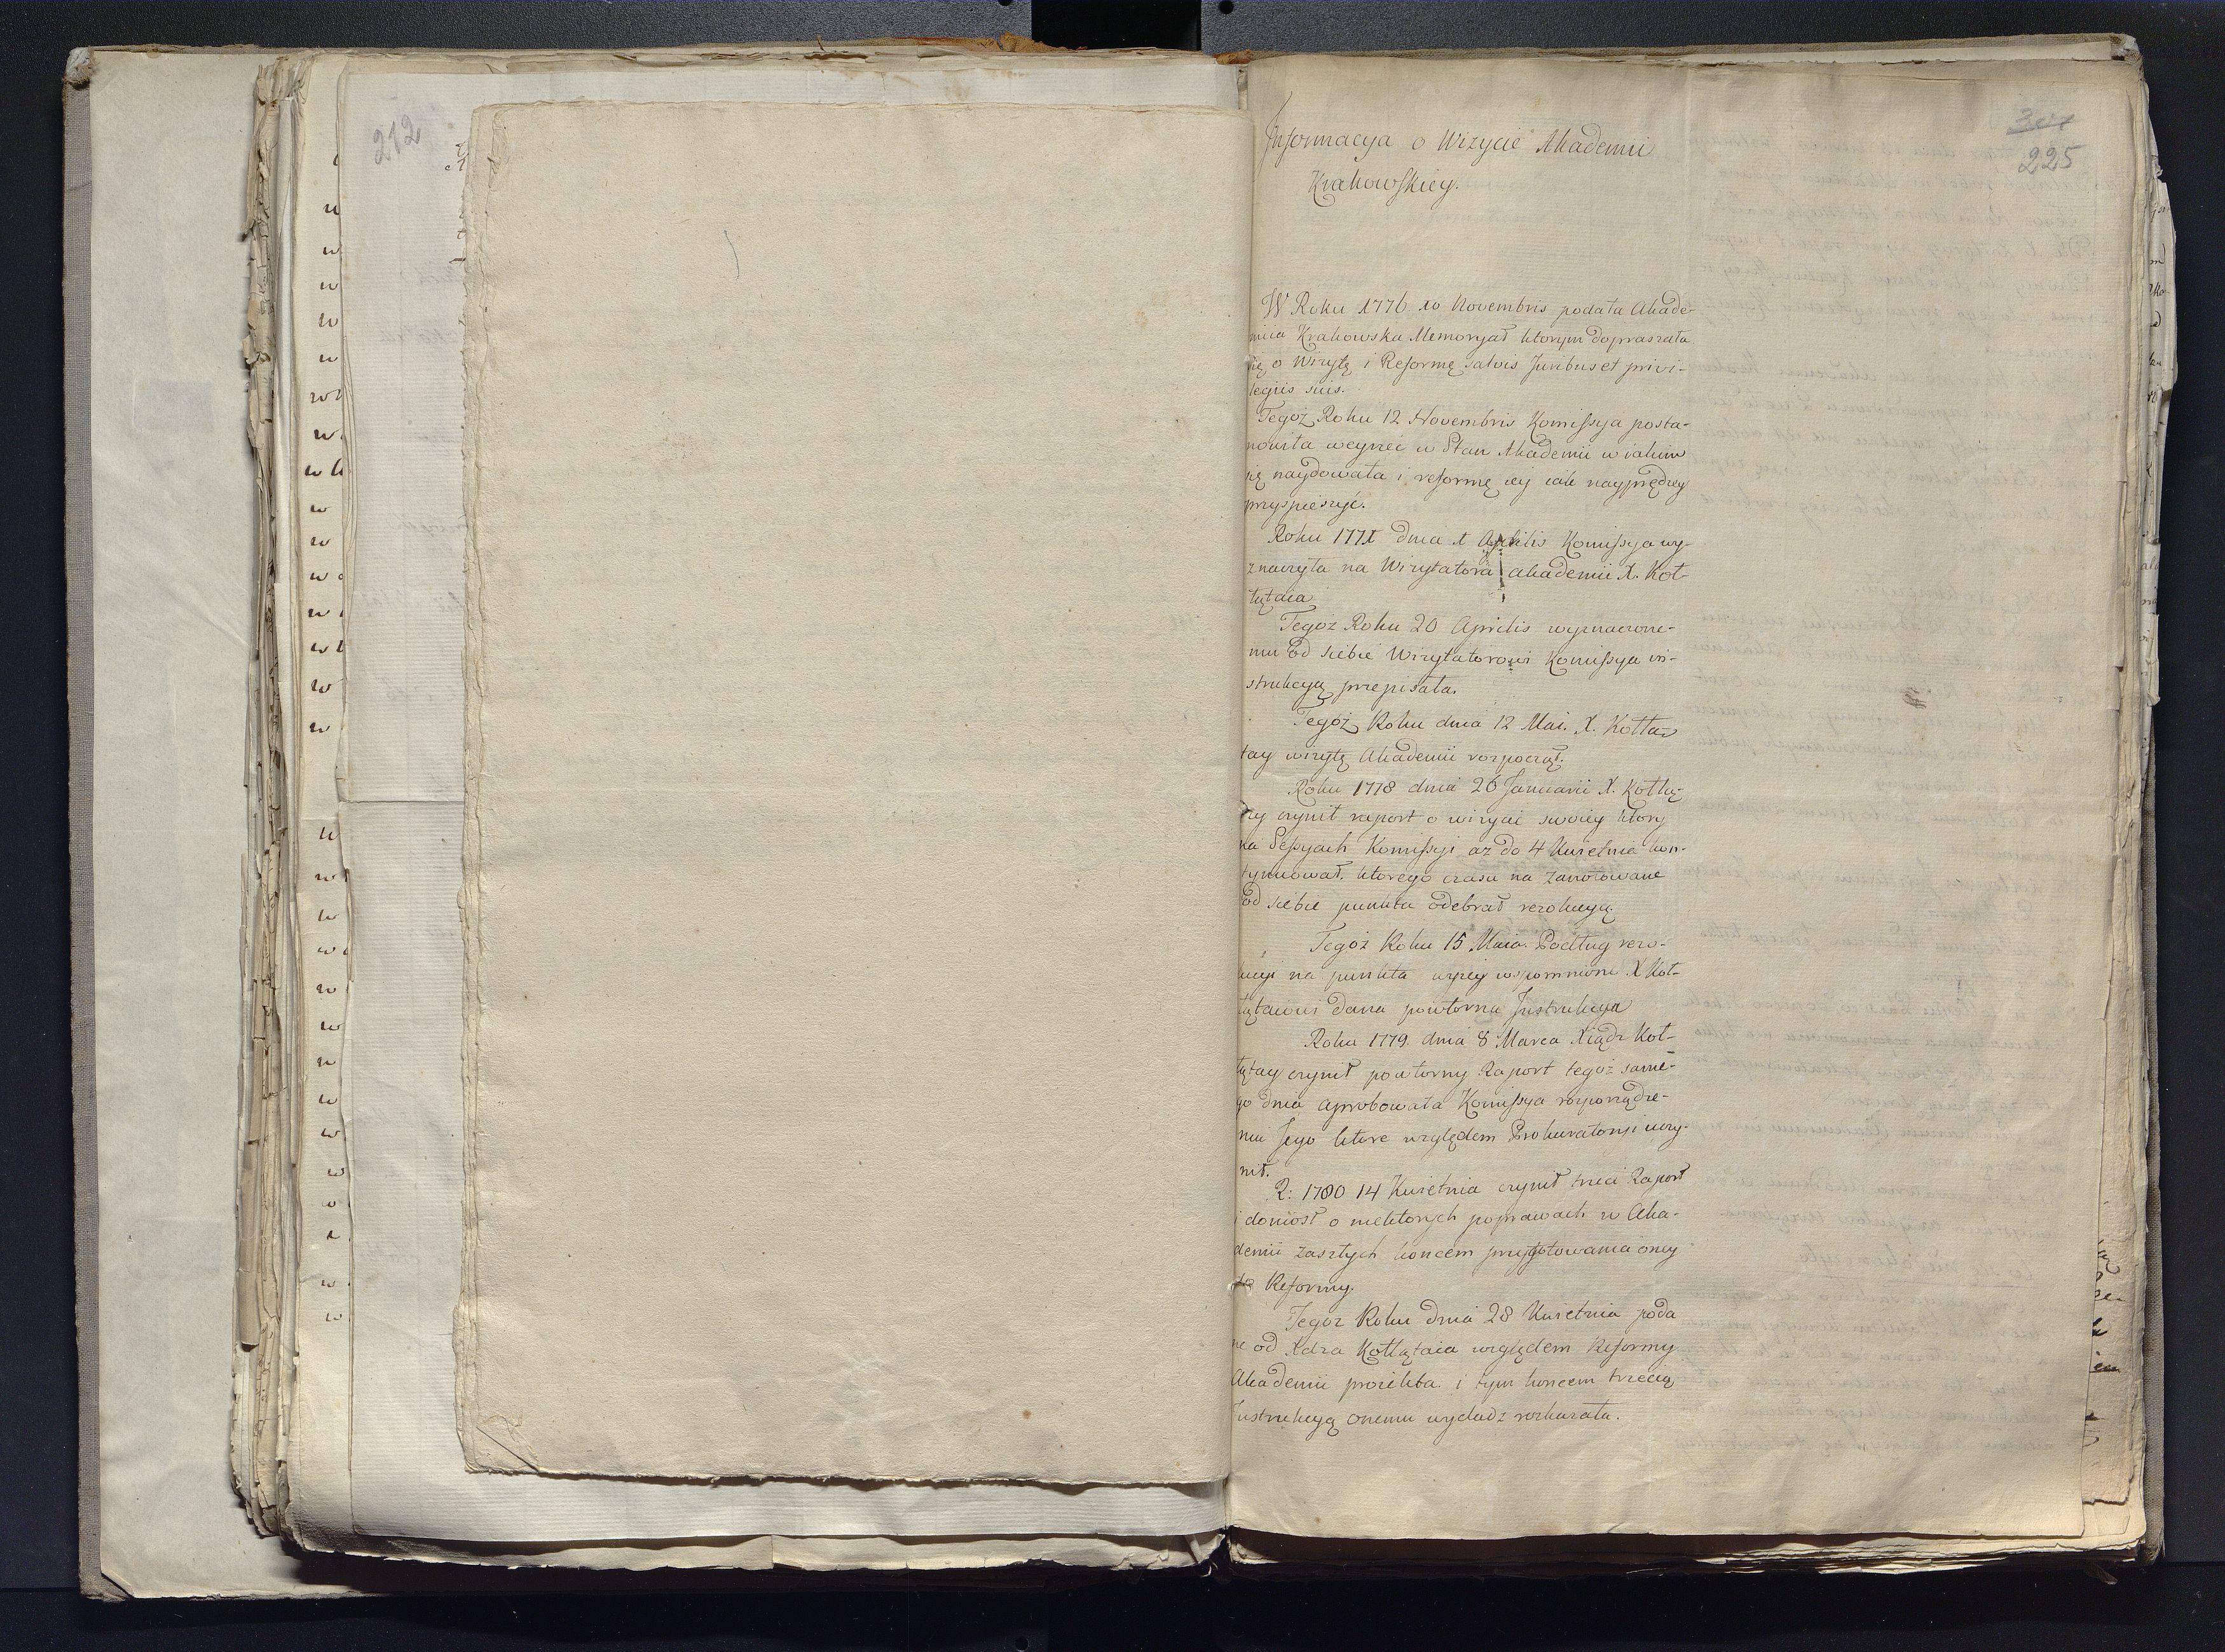 212
304
225
Informacya o Wizycie Akademii
Krakowskiey.
W Roku 1776 10 Novembris podała Akade-
mia Krakowska Memoryał ktorym dopraszała
się o Wizytę i Reformę salvis Juribus et privi-
legiis suis.
Tegoż Roku 12 Novembris Komissya posta-
nowiła weyrzeć w Stan Akademii w iakim
się naydowała i reformę iey iak nayprędzey
przyspieszyć.
Roku 1777 dnia 1 Aprilis Komissya wy-
znaczyła na Wizytatora akademii X. Koł-
łątaia
Tegoż Roku 20 Aprilis wyznaczone-
mu od siebie Wizytatorowi Komissya in-
strukcyą przepisała.
Tegoż Roku dnia 12 Mai. X. Kołłą-
tay wizytę Akademii rozpoczął.
Roku 1778 dnia 26 Januarii X. Kołłą-
tay czynił raport o wizycie swoiey ktory
na Sessyach Komissyi az do 4 Kwietnia kon-
tynuował, ktorego czasu na zanotowane
od siebie punkta odebrał rezolucyą.
Tegoż Roku 15 Maia. Podług rezo-
lucyi na punkta wyżey wspomnione X Koł-
łątaiowi dana powtorna Instrukcya
Roku 1779. dnia 8 Marca Xiądz Koł-
łątay czynił powtorny Raport tegoż same-
go dnia aprobowała Komissya rozporządze-
nia Jego ktore względem Prokuratoryi uczy-
nił.
R: 1780 14 Kwietnia czynił trzeci Raport
i doniosł o niektorych poprawach w Aka-
demii zaszłych koncem przygotowania oney
do Reformy.
Tegoż Roku dnia 28 Kwietnia poda
ne od Xdza Kołłątaia względem Reformy
Akademii proiekta. i tym koncem trzecią
Instrukcyą onemu wydadz rozkazała.